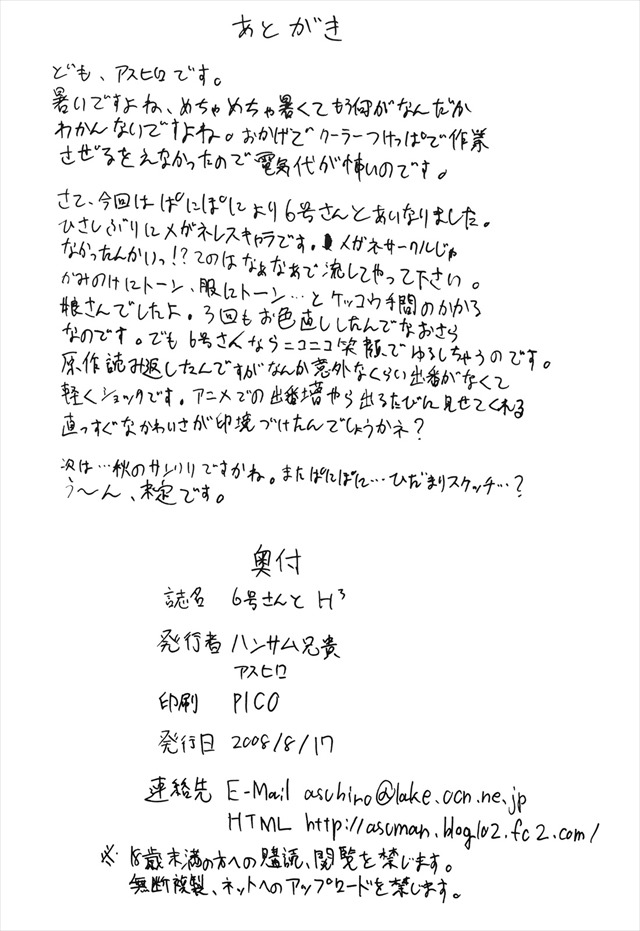 あとがき
ども、アスヒロです。
暑いですよね、めちゃめちゃ暑くてもう何がなんだか
わかんないですよね。おかげでクーラーつけっぱで作業
させざるをえなかったので電気代が怖いのです。
さて、今回はぱにぽにより6号さんとあいなりました。
ひさしぶりにメガネレスキャラです。メガネサークルじゃ
なかったんかいっ!?てのはなぁなぁで流してやって下さい。
かみのけにトーン、服にトーン…とケッコウ手間のかかる
娘さんでしたよ。3回もお色直ししたんでなおさら
なのです。でも6号さんならニコニコ笑顔でゆるしちゃうのです。
原作読み返したんですがなんか意外なくらい出番がなくて
軽くショックです。アニメでの出番増やら出るたびに見せてくれる
真っすぐなかわいさが印境づけたんでしょうかネ?
次は…秋のサンクリですかね。またぱにぽに…ひだまりスケッチ…?
う〜ん、未定です。
奥付
誌名 6号さんと H³
発行者 ハンサム兄貴
アスヒロ
印刷 PICO
発行日 2008/8/17
連絡先 E-Mail asuhiro@lake.ocn.ne.jp
HTML http://asuman.blog102.fc2.com/
※ 18歳未満の方への購読、閲覧を禁じます。
無断複製、ネットへのアップロードを禁じます。